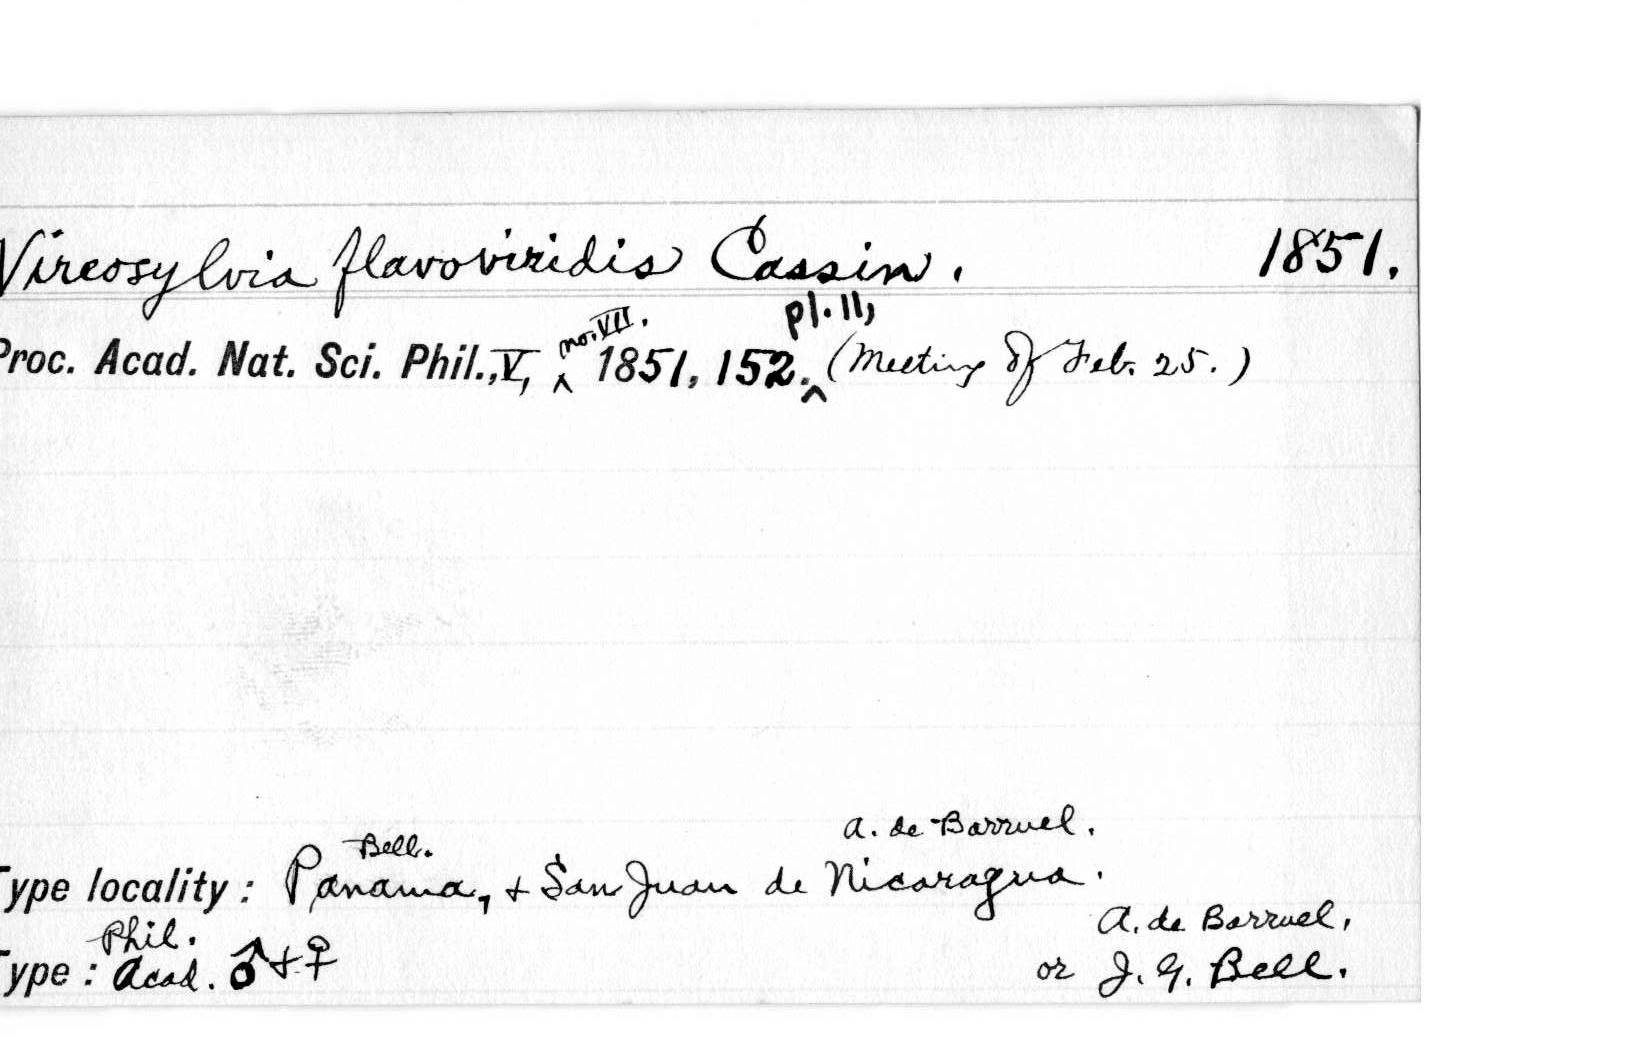 Vireosylvia flavoviridis Cassin. 1851.
no. VII. pl. 11,
Proc. Acad. Nat. Sci. Phil., V, ^ 1851, 152. ^ (Meeting of Feb. 25.)
Bell. A. de Barruel.
Type locality: Panama, + San Juan de Nicaragua.
Phil. A. de Barruel,
Type: Acad. ♂ + ♀ or J. G. Bell.